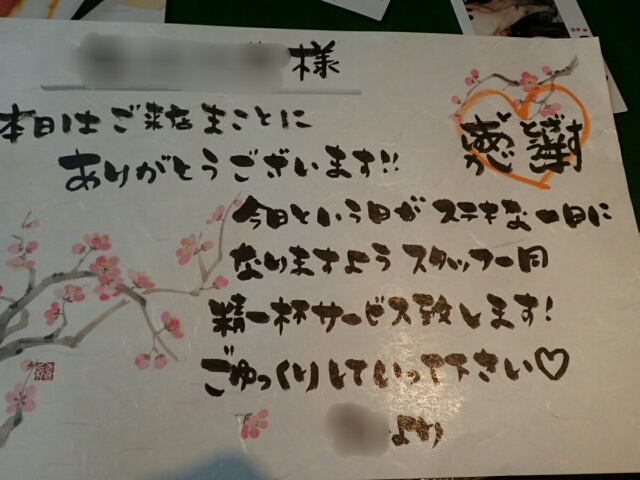 様
本日はご来店まことに
ありがとうございます!!
今日という日がステキな一日に
なりますようスタッフ一同
精一杯サービス致します!
ごゆっくりしていって下さい♡
より